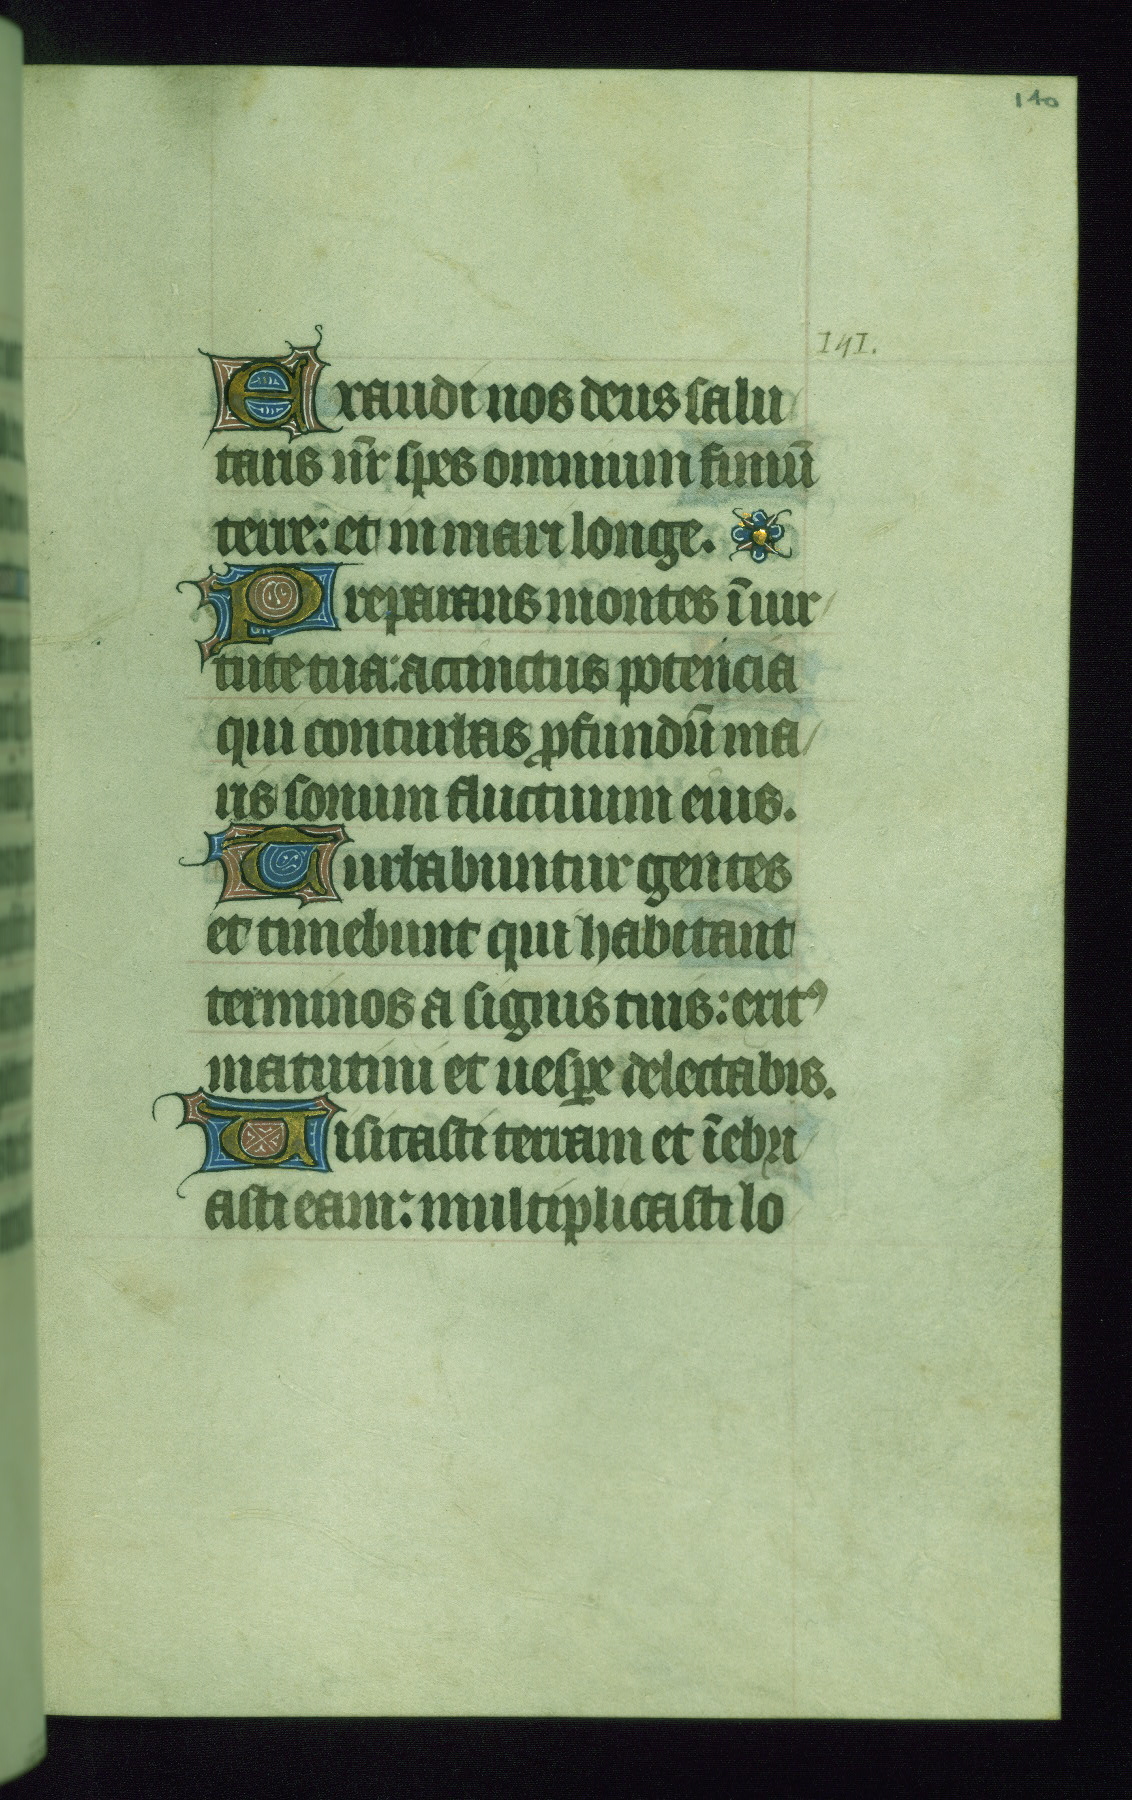 140
141.
Exaudi nos deus salu
taris nr̄ spes omnium finiū
terre: et in mari longe.
Preparans montes ī uir
tute tua: accinctus potencia
qui conturbas ꝓfundū ma
ris sonum fluctuum eius.
Turbabuntur gentes
et timebunt qui habitant
terminos a signis tuis: exitꝰ
matutini et uesꝑe delectabis.
Uisitasti terram et īebri
asti eam: multiplicasti lo